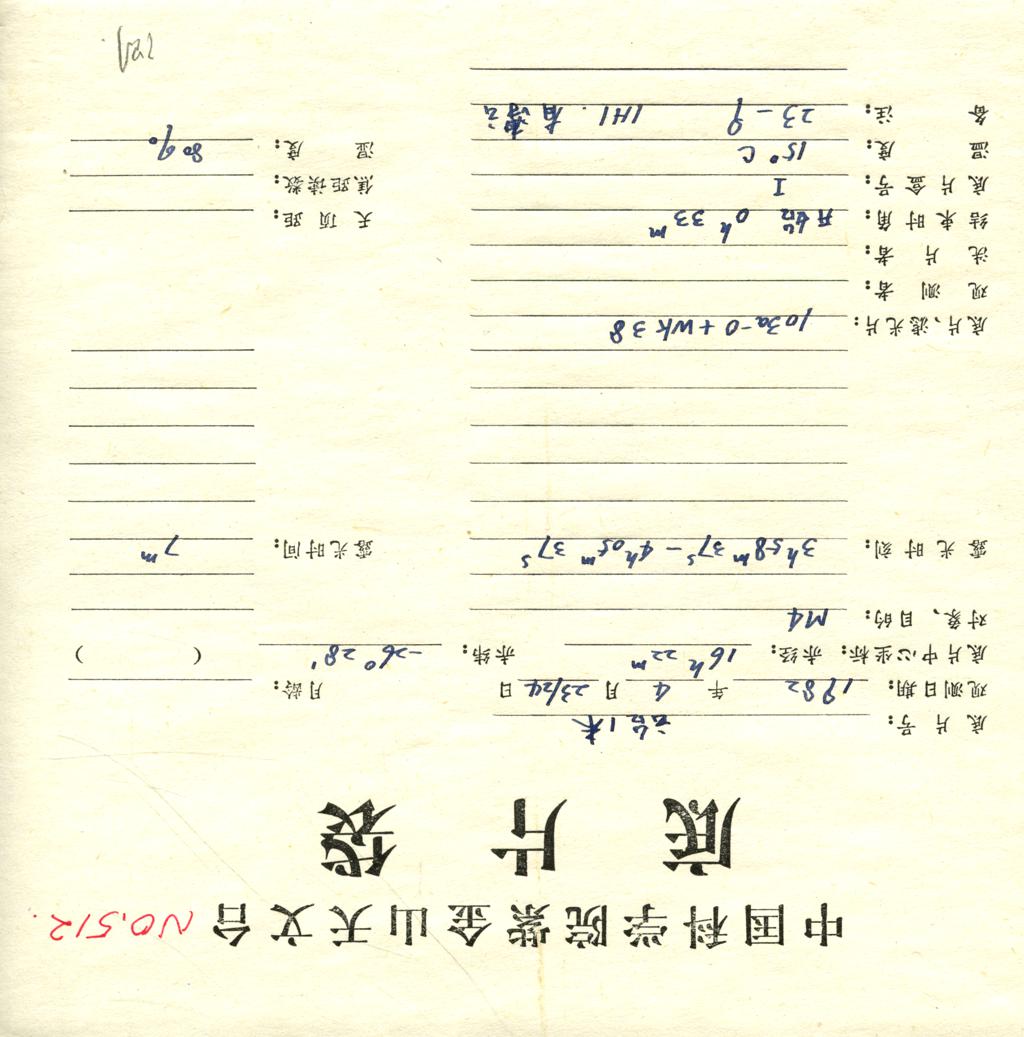 中国科学院紫金山天文台 NO.512.
底片袋
底片号:
观测日期: 1982 年 4 月 23/24 日 月龄:
底片中心坐标: 赤经: 16h 22m 赤纬: -26° 28' ( )
对象、目的: M4
露光时刻: 3h58m37s - 4h05m37s 露光时间: 7m
底片、滤光片: 103a-O+WK38
观测者:
洗片者:
结束时角: 开始 0h 33m 天顶距:
底片盒号: I 焦距读数:
温度: 15°C 湿度: 80%
备注: 23-9 1H1. 有薄云